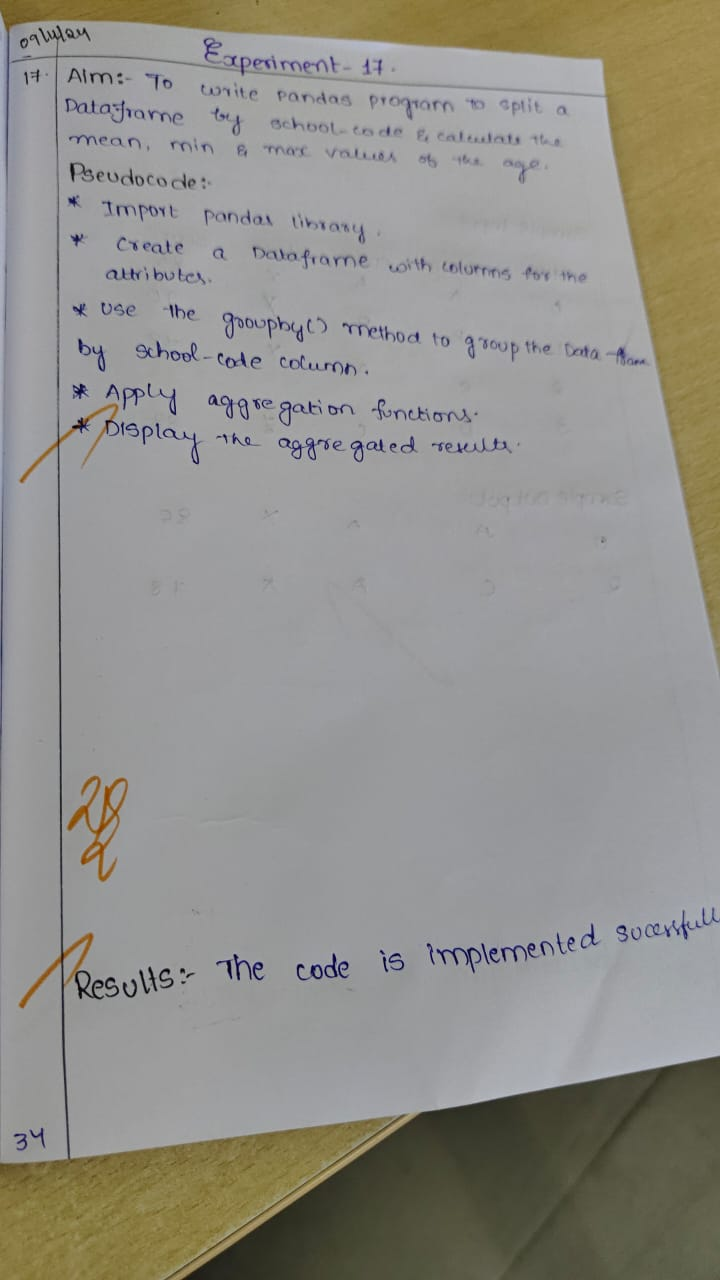 09/4/24
Experiment - 17.
17. Aim:- To write pandas program to split a
Dataframe by school-code & calculate the
mean, min & max values of the age.
Pseudocode:-
* Import pandas library.
* Create a Dataframe with columns for the
attributes.
* Use the groupby() method to group the Data-frame
by school-code column.
* Apply aggregation functions.
* Display the aggregated results.
Results:- The code is implemented sucessfull
34